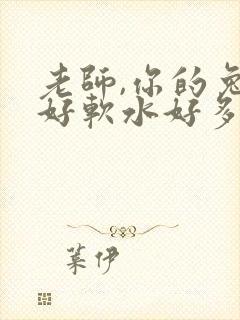 老師,你的兔
好軟水好多
葉伊